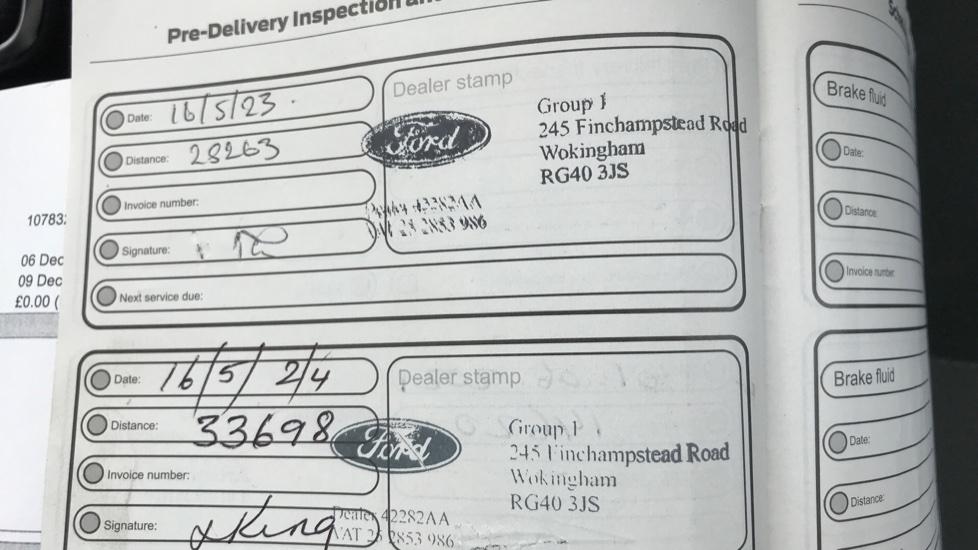 Pre-Delivery Inspection
Date: 16/5/23
Distance: 28263
Invoice number:
Signature:
Next service due:
Dealer stamp
Ford
Group 1
245 Finchampstead Road
Wokingham
RG40 3JS
42282AA
2853 986
Brake fluid
Date:
Distance:
Invoice number
10783
06 Dec
09 Dec
£0.00 (
Date: 16/5/24
Distance: 33698
Invoice number:
Signature: King
Dealer stamp
Ford
Group 1
245 Finchampstead Road
Wokingham
RG40 3JS
Dealer 42282AA
VAT 25 2853 986
Brake fluid
Date:
Distance: